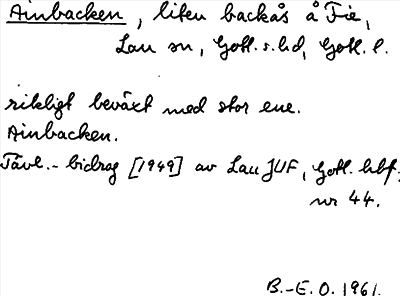 Ainbacken, liten backås å Fie,
Lau sn, Gotl. s. hd, Gotl. l.
rikligt beväxt med stor ene.
Ainbacken.
Tävl.-bidrag [1949] av Lau JUF, Gotl. hbf.
nr 44.
B.-E. O. 1961.